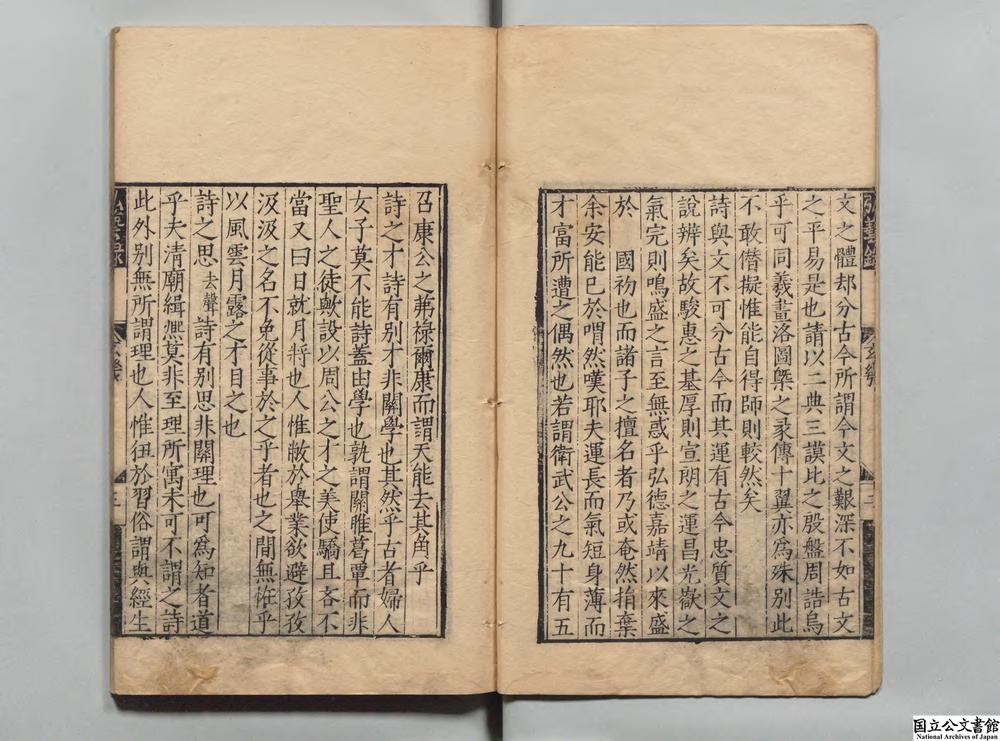 文之體却分古今所謂今文之艱深不如古文
之平易是也請以二典三謨比之殷盤周誥烏
乎可同羲畫洛圖槩之彖傳十翼亦為殊别此
不敢僭擬惟能自得師則較然矣
詩與文不可分古今而其運有古今忠質文之
說辨矣故駿惠之基厚則宣朗之運昌光嶽之
氣完則鳴盛之言至無惑乎弘德嘉靖以來盛
於　國初也而諸子之擅名者乃或奄然捐棄
余安能已於喟然嘆耶夫運長而氣短身薄而
才富所遭之偶然也若謂衛武公之九十有五
召康公之茀祿爾康而謂天能去其角乎
詩之才詩有别才非關學也其然乎古者婦人
女子莫不能詩蓋由學也孰謂關雎葛覃而非
聖人之徒歟設以周公之才之美使驕且吝不
當又曰日就月將也人惟敝於舉業欲避孜孜
汲汲之名不免從事於之乎者也之間無恠乎
以風雲月露之才目之也
詩之思去聲詩有别思非關理也可為知者道
乎夫清廟緝熈莫非至理所寓未可不謂之詩
此外别無所謂理也人惟狃於習俗謂與經生
国立公文書館
National Archives of Japan